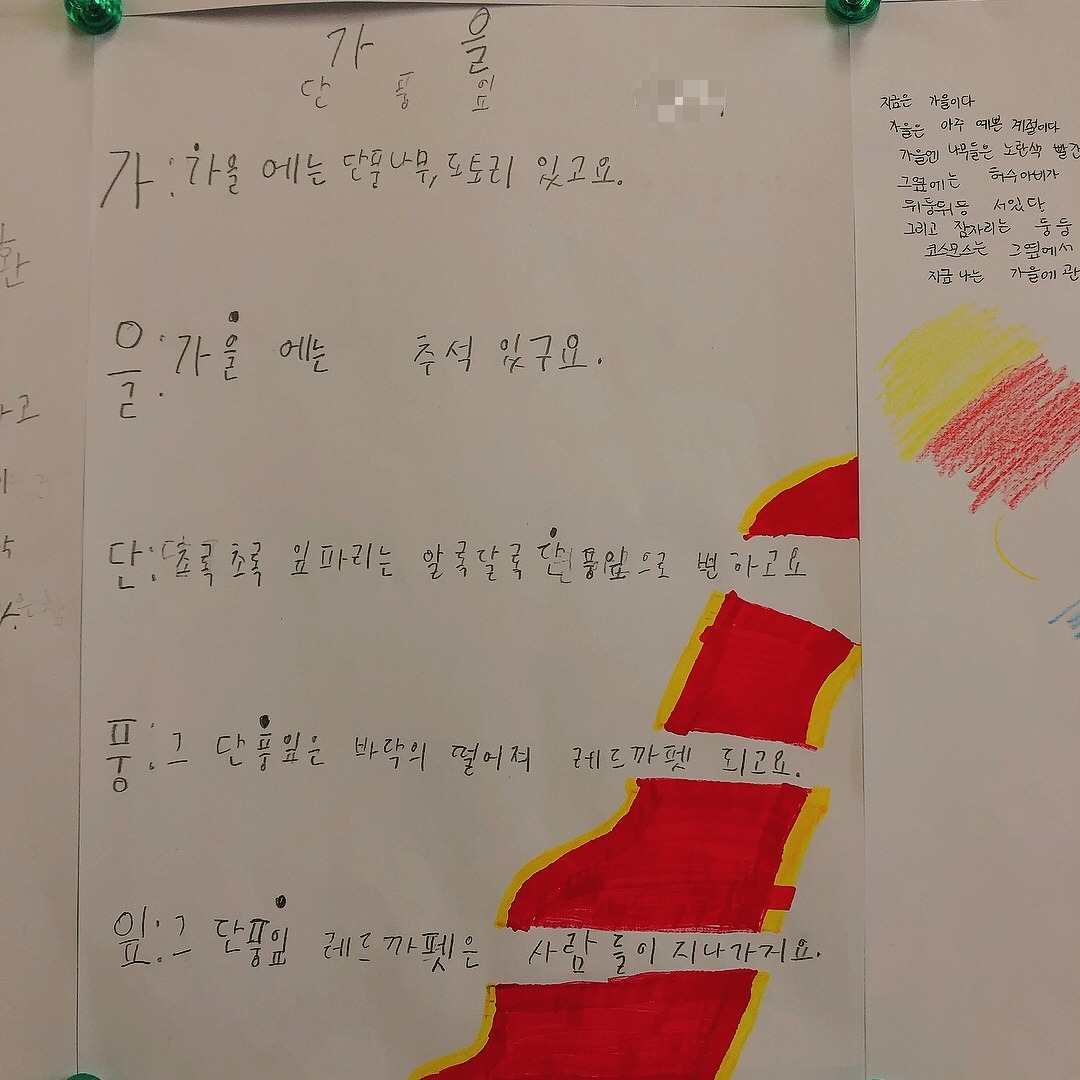 가 을
단 풍 잎
가:가을 에는 단풍나무,도토리 있고요.
을:가을 에는 추석 있구요.
단:초록초록 잎파리는 알록달록 단풍잎으로 변하고요
풍:그 단풍잎은 바닥의 떨어져 레드까펫 되고요.
잎:그 단풍잎 레드까펫은 사람들이 지나가지요.
지금은 가을이다
가을은 아주 예쁜 계절이다
가을엔 나무들은 노란색 빨간
그옆에는 허수아비가
뒤뚱뒤뚱 서있단
그리고 잠자리는 둥둥
코스모스는 그옆에서
지금 나는 가을에 관
환
하고